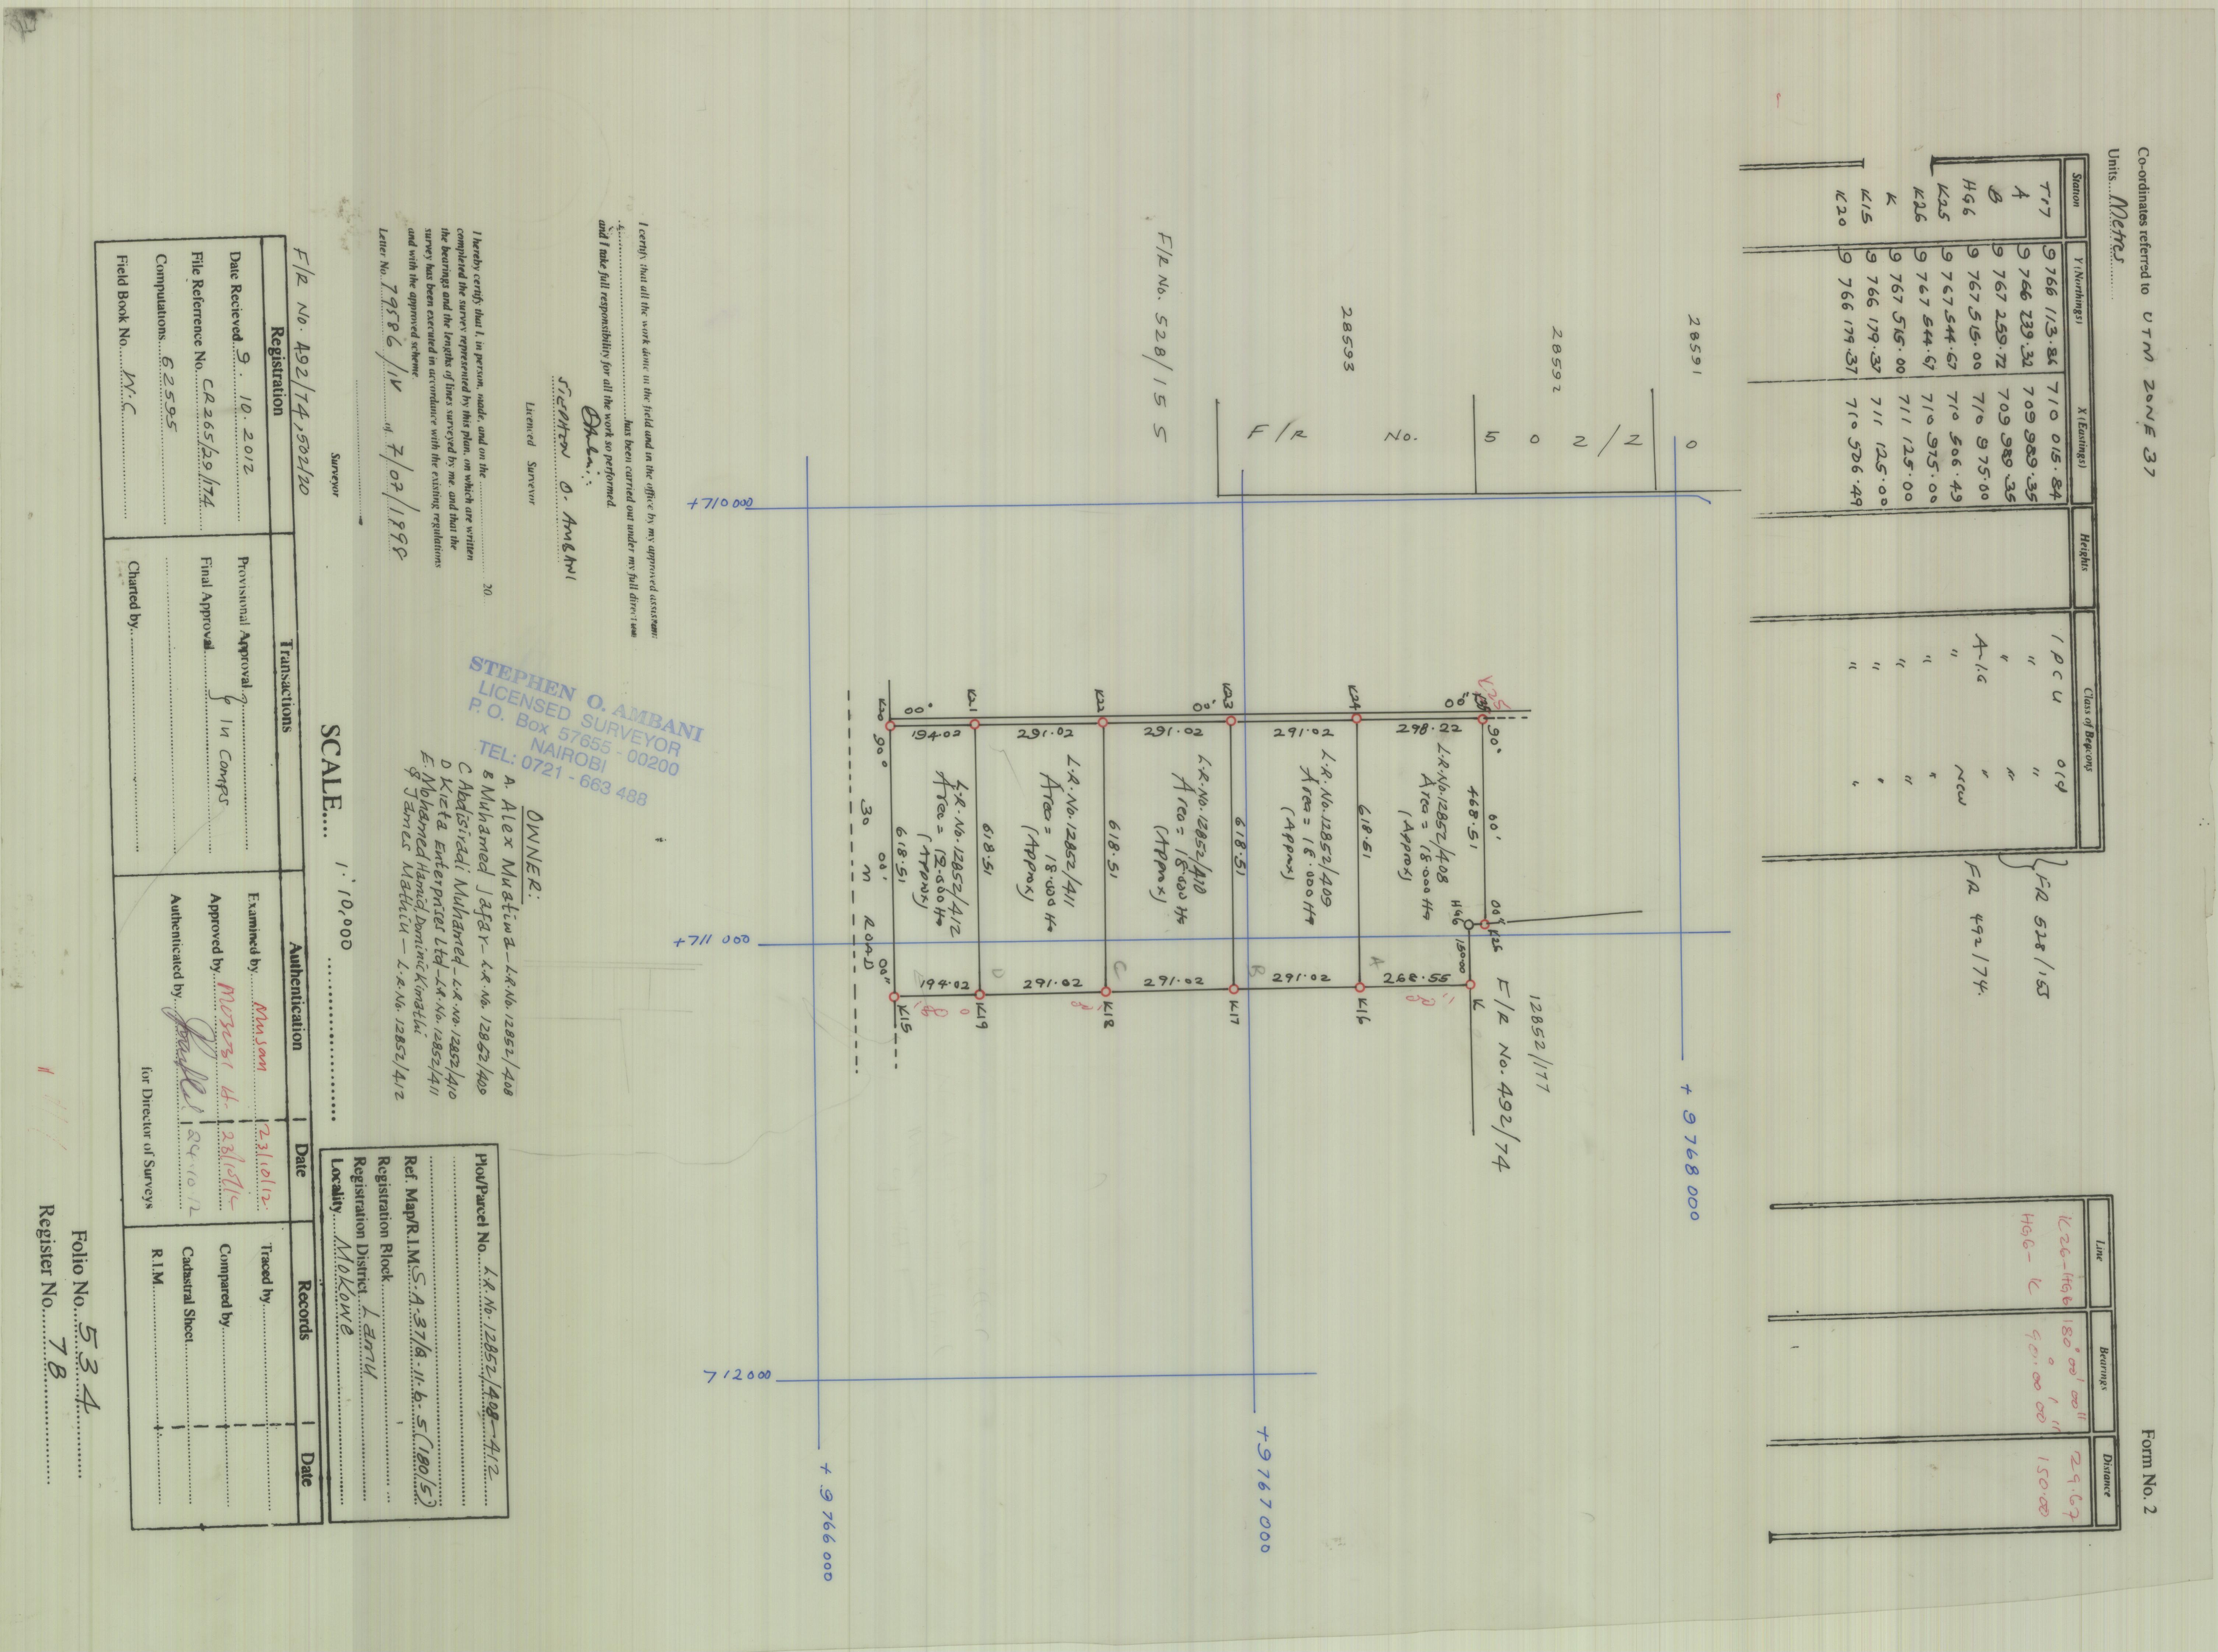 Form No. 2
Co-ordinates referred to UTM ZONE 37
Units....Metres
Station
Y (Northings)
X (Eastings)
Heights
Class of Beacons
T17 9 766 113.86 710 015.84 I P C U old
A 9 766 739.32 709 989.35 " "
B 9 767 259.72 709 989.35 " "
HG6 9 767 515.00 710 975.00 A.I.C "
K25 9 767 544.67 710 506.49 " New
K26 9 767 544.67 710 975.00 " "
K 9 767 515.00 711 125.00 " "
K15 9 766 179.37 711 125.00 " "
K20 9 766 179.37 710 506.49 " "
FR 528/155
FR 492/74.
Line
Bearings
Distance
K26-HG6 180° 00' 00" 29.67
HG6 - K 90° 00' 00" 150.00
+ 9768 000
+9767 000
+ 9766 000
+710 000
+711 000
712 000
28591
28592
28593
F/R No. 502/20
F/R No. 528/155
12852/177
F/R No. 492/74
K25
90° 00' 00"
468.51
K26
HG6
150.00
K
298.22
L.R.No.12852/408
Area = 18.000 Ha
(Approx)
268.55
A
K24
618.51
K16
291.02
L.R.No.12852/409
Area = 18.000 Ha
(Approx)
291.02
B
K23
618.51
K17
291.02
L.R.No.12852/410
Area = 18.000 Ha
(Approx)
291.02
K22
618.51
K18
C
291.02
L.R.No.12852/411
Area = 18.000 Ha
(Approx)
291.02
K21
618.51
K19
D
194.02
L.R.No.12852/412
Area = 12.000 Ha
(Approx)
194.02
K20
90° 00' 00"
618.51
K15
30 m ROAD
I certify that all the work done in the field and in the office by my approved assistant
has been carried out under my full direction
and I take full responsibility for all the work so performed.
STEPHEN O. AMBANI
Licenced Surveyor
I hereby certify that I, in person, made, and on the 20
completed the survey represented by this plan, on which are written
the bearings and the lengths of lines surveyed by me. and that the
survey has been executed in accordance with the existing regulations
and with the approved scheme
Letter No. 79586/IV of 7/07/1998
Surveyor
STEPHEN O. AMBANI
LICENSED SURVEYOR
P. O. Box 57655 - 00200
NAIROBI
TEL: 0721 - 663 488
OWNER:
A. Alex Muatiwa - L.R.No.12852/408
B Muhamed Jafar - L.R.No. 12852/409
C Abdisiradi Muhamed - L.R.No.12852/410
D Kizta Enterprises Ltd - L.R.No.12852/411
E. Mohamed Hamid, Dominic Kimathi
& James Mathiu - L.R.No. 12852/412
SCALE.... 1:10,000
Plot/Parcel No. L.R.No.12852/408-412
Ref. Map/R.I.M. S.A-37/Q.11.b.5(180/5)
Registration Block
Registration District Lamu
Locality Mokowe
F/R No. 492/74,502/20
Registration
Transactions
Authentication
Date
Records
Date
Date Recieved 9.10.2012
File Referrence No. CR265/29/174
Computations 62595
Field Book No. N.C
Provisional Approval
Final Approval
In Comps
Charted by
Examined by 23/10/12
Approved by
Authenticated by 24.10.12
for Director of Surveys
Traced by
Compared by
Cadastral Sheet
R.I.M.
Folio No. 534
Register No. 78